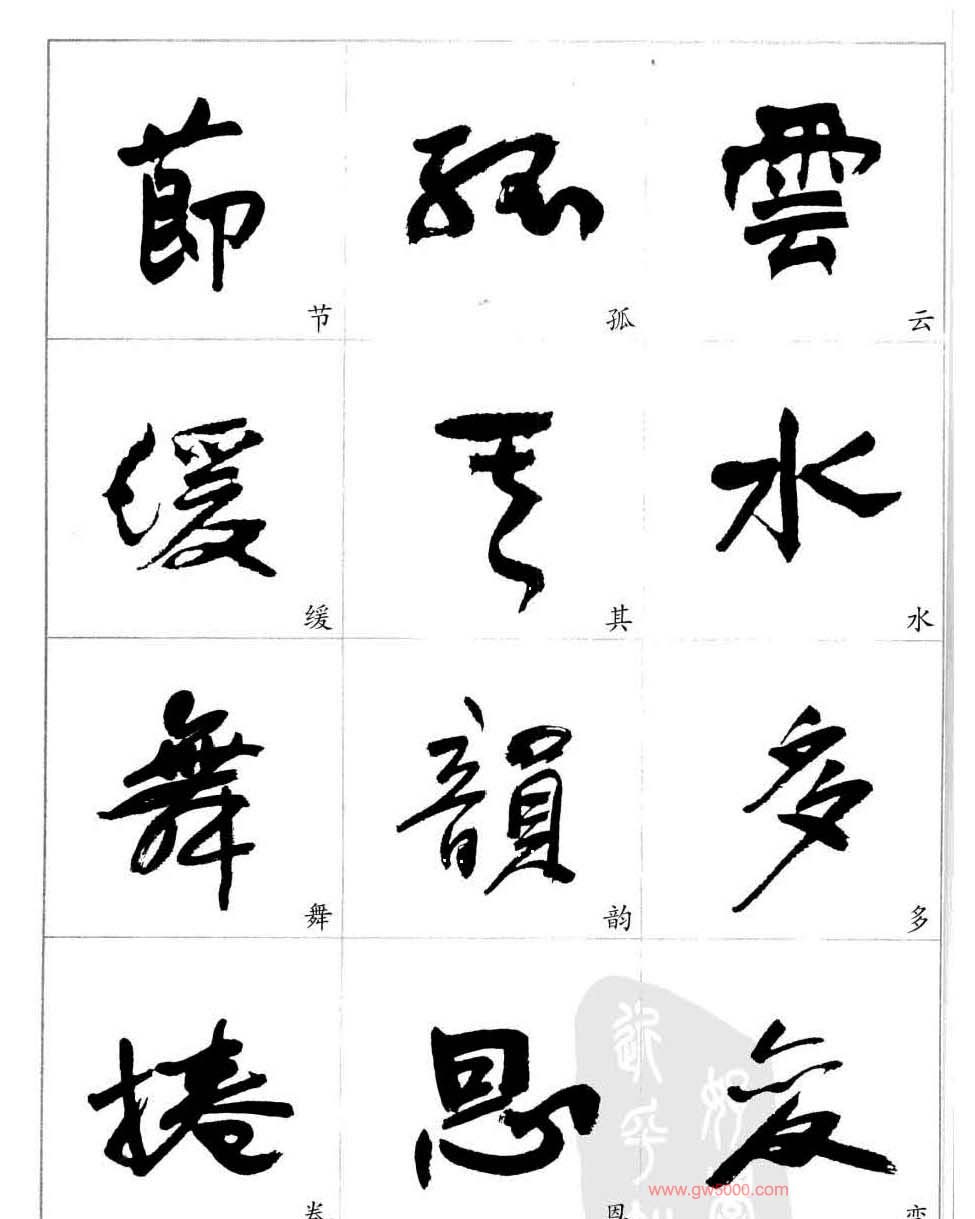 節 孤 雲
节 孤 云
缓 其 水
缓 其 水
舞 韻 多
舞 韵 多
捲 恩 变
卷 恩 变
www.gw5000.com